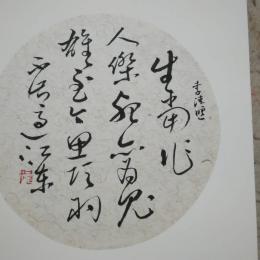 李清照
生當作
人傑死亦為鬼
雄至今思項羽
不肯過江東